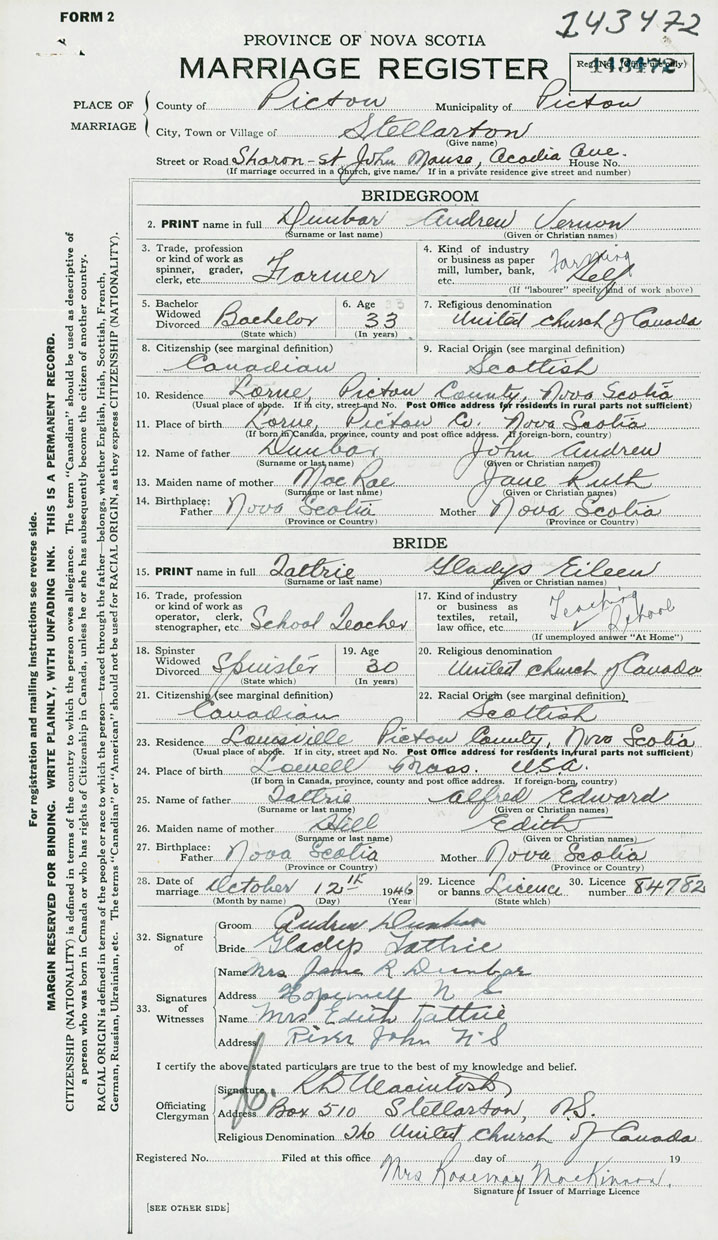 FORM 2
143472
PROVINCE OF NOVA SCOTIA
MARRIAGE REGISTER
Reg. No. (Office use only)
143472
PLACE OF MARRIAGE
County of Pictou Municipality of Pictou
City, Town or Village of Stellarton
(Give name)
Street or Road Sharon-St John Manse, Acadia Ave. House No.
(If marriage occurred in a Church, give name. If in a private residence give street and number)
BRIDEGROOM
2. PRINT name in full Dunbar Andrew Vernon
(Surname or last name) (Given or Christian names)
3. Trade, profession or kind of work as spinner, grader, clerk, etc. Farmer
4. Kind of industry or business as paper mill, lumber, bank, etc. Farming Self
(If "labourer" specify kind of work above)
5. Bachelor Widowed Divorced Bachelor
(State which)
6. Age 33
(In years)
7. Religious denomination
United church of Canada
8. Citizenship (see marginal definition)
Canadian
9. Racial Origin (see marginal definition)
Scottish
10. Residence Lorne, Pictou County, Nova Scotia
(Usual place of abode. If in city, street and No. Post Office address for residents in rural parts not sufficient)
11. Place of birth Lorne, Pictou Co. Nova Scotia
(If born in Canada, province, county and post office address. If foreign-born, country)
12. Name of father Dunbar John Andrew
(Surname or last name) (Given or Christian names)
13. Maiden name of mother MacRae Jane Ruth
(Surname or last name) (Given or Christian names)
14. Birthplace: Father Nova Scotia Mother Nova Scotia
(Province or Country) (Province or Country)
BRIDE
15. PRINT name in full Tattrie Gladys Eileen
(Surname or last name) (Given or Christian names)
16. Trade, profession or kind of work as operator, clerk, stenographer, etc. School Teacher
17. Kind of industry or business as textiles, retail, law office, etc. Teaching School
(If unemployed answer "At Home")
18. Spinster Widowed Divorced Spinster
(State which)
19. Age 30
(In years)
20. Religious denomination
United church of Canada
21. Citizenship (see marginal definition)
Canadian
22. Racial Origin (see marginal definition)
Scottish
23. Residence Louisville Pictou County, Nova Scotia
(Usual place of abode. If in city, street and No. Post Office address for residents in rural parts not sufficient)
24. Place of birth Lowell Mass. U.S.A.
(If born in Canada, province, county and post office address. If foreign-born, country)
25. Name of father Tattrie Alfred Edward
(Surname or last name) (Given or Christian names)
26. Maiden name of mother Hill Edith
(Surname or last name) (Given or Christian names)
27. Birthplace: Father Nova Scotia Mother Nova Scotia
(Province or Country) (Province or Country)
28. Date of marriage October 12th 1946
(Month by name) (Day) (Year)
29. Licence or banns Licence
(State which)
30. Licence number 84782
32. Signature of
Groom Andrew Dunbar
Bride Gladys Tattrie
33. Signatures of Witnesses
Name Mrs Jane R Dunbar
Address Hopewell N S
Name Mrs Edith Tattrie
Address River John N.S
I certify the above stated particulars are true to the best of my knowledge and belief.
Officiating Clergyman
Signature Macintosh
Address Box 510 Stellarton, N.S.
Religious Denomination The United church of Canada
Registered No. Filed at this office day of 19
Mrs Rosemay MacKinnon.
Signature of Issuer of Marriage Licence
[SEE OTHER SIDE]
For registration and mailing instructions see reverse side.
MARGIN RESERVED FOR BINDING. WRITE PLAINLY, WITH UNFADING INK. THIS IS A PERMANENT RECORD.
CITIZENSHIP (NATIONALITY) is defined in terms of the country to which the person owes allegiance. The term "Canadian" should be used as descriptive of
a person who was born in Canada or who has rights of Citizenship in Canada, unless he or she has subsequently become the citizen of another country.
RACIAL ORIGIN is defined in terms of the people or race to which the person—traced through the father—belongs, whether English, Irish, Scottish, French,
German, Russian, Ukrainian, etc. The terms "Canadian" or "American" should not be used for RACIAL ORIGIN, as they express CITIZENSHIP (NATIONALITY).